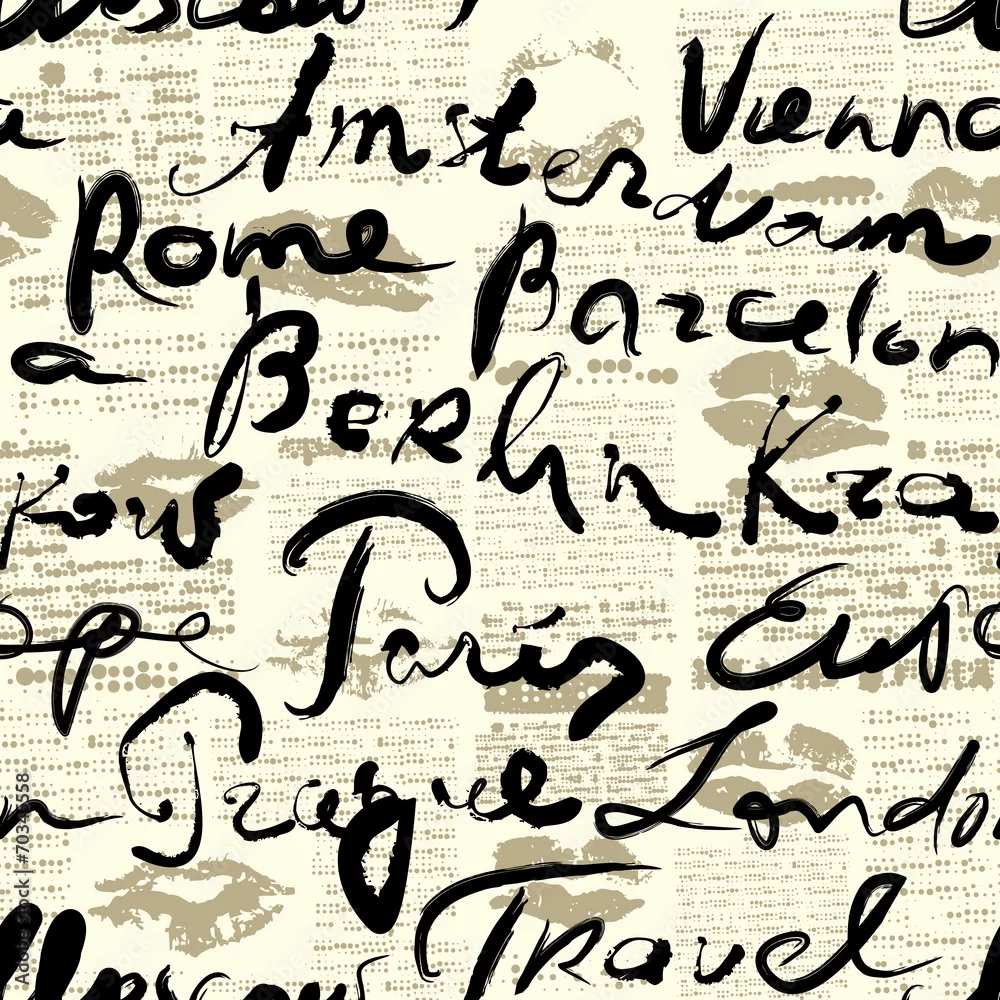 Amsterdam
Vienna
Rome
Barcelona
Berlin
Krakow
Paris
Europe
Prague
London
Travel
Moscow
Adobe Stock | #703445558